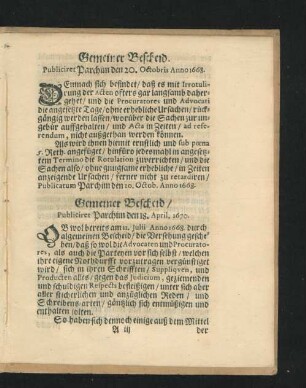 Gemeiner Bescheid.
Publiciret Parchim den 20. Octobris Anno 1668.
DEmnach sich befindet / daß es mit Irrotuli-
rung der Acten offters gar langsamb daher-
gehet / und die Procuratores und Advocati
die angesetzte Tage / ohne erhebliche Ursachen / rück-
gängig werden lassen / worüber die Sachen zur un-
gebür auffgehalten / und Acta in Zeiten / ad refe-
rendum, nicht außgethan werden können.
Als wird ihnen hiemit ernstlich und sub pœna
5. Rth. angefüget / hinfüro jedesmahl in angesetz-
tem Termino die Rotulation zuverrichten / und die
Sachen also / ohne gnugsame erhebliche / in Zeiten
anzeigende Ursachen / ferner nicht zu retardiren /
Publicatum Parchim den 20. Octob. Anno 1668.
Gemeiner Bescheid /
Publiciret Parchim den 18. April. 1670.
OB wol bereits am 12. Julii Anno 1668. durch
algemeinen Bescheid / die Versehung gesche-
hen / daß so wol die Advocaten und Procurato-
res, als auch die Parteyen vor sich selbst / welchen
ihre eigene Nothdurfft vorzutragen vergünstiget
wird / sich in ihren Schrifften / Suppliquen, und
Producten alles / gegen das Judicium, geziemenden
und schuldigen Respects befleißigen / unter sich aber
aller stichelichen und anzüglichen Reden / und
Schreibens-arten / gäntzlich sich entmüßigen und
enthalten solten.
So haben sich dennoch einige auß dem Mittel
A iij der